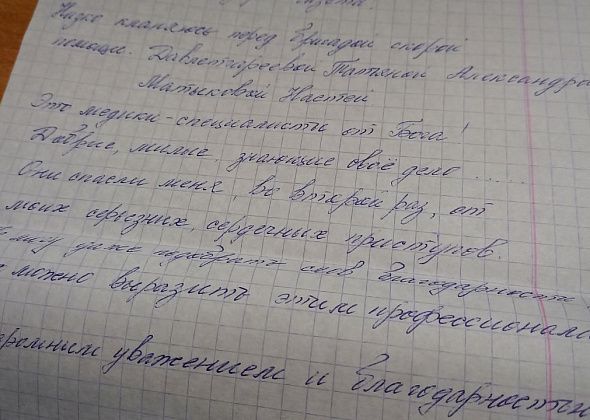 Низко кланяюсь перед бригадой скорой
помощи. Давлетгареевой Татьяной Александро
Матыковой Настей
Это медики-специалисты от Бога!
Добрые, милые, знающие своё дело.....
Они спасли меня, во второй раз, от
моих серьезных, сердечных приступов.
могу даже подобрать слов благодарности
можно выразить этим профессионала
громным уважением и благодарностью